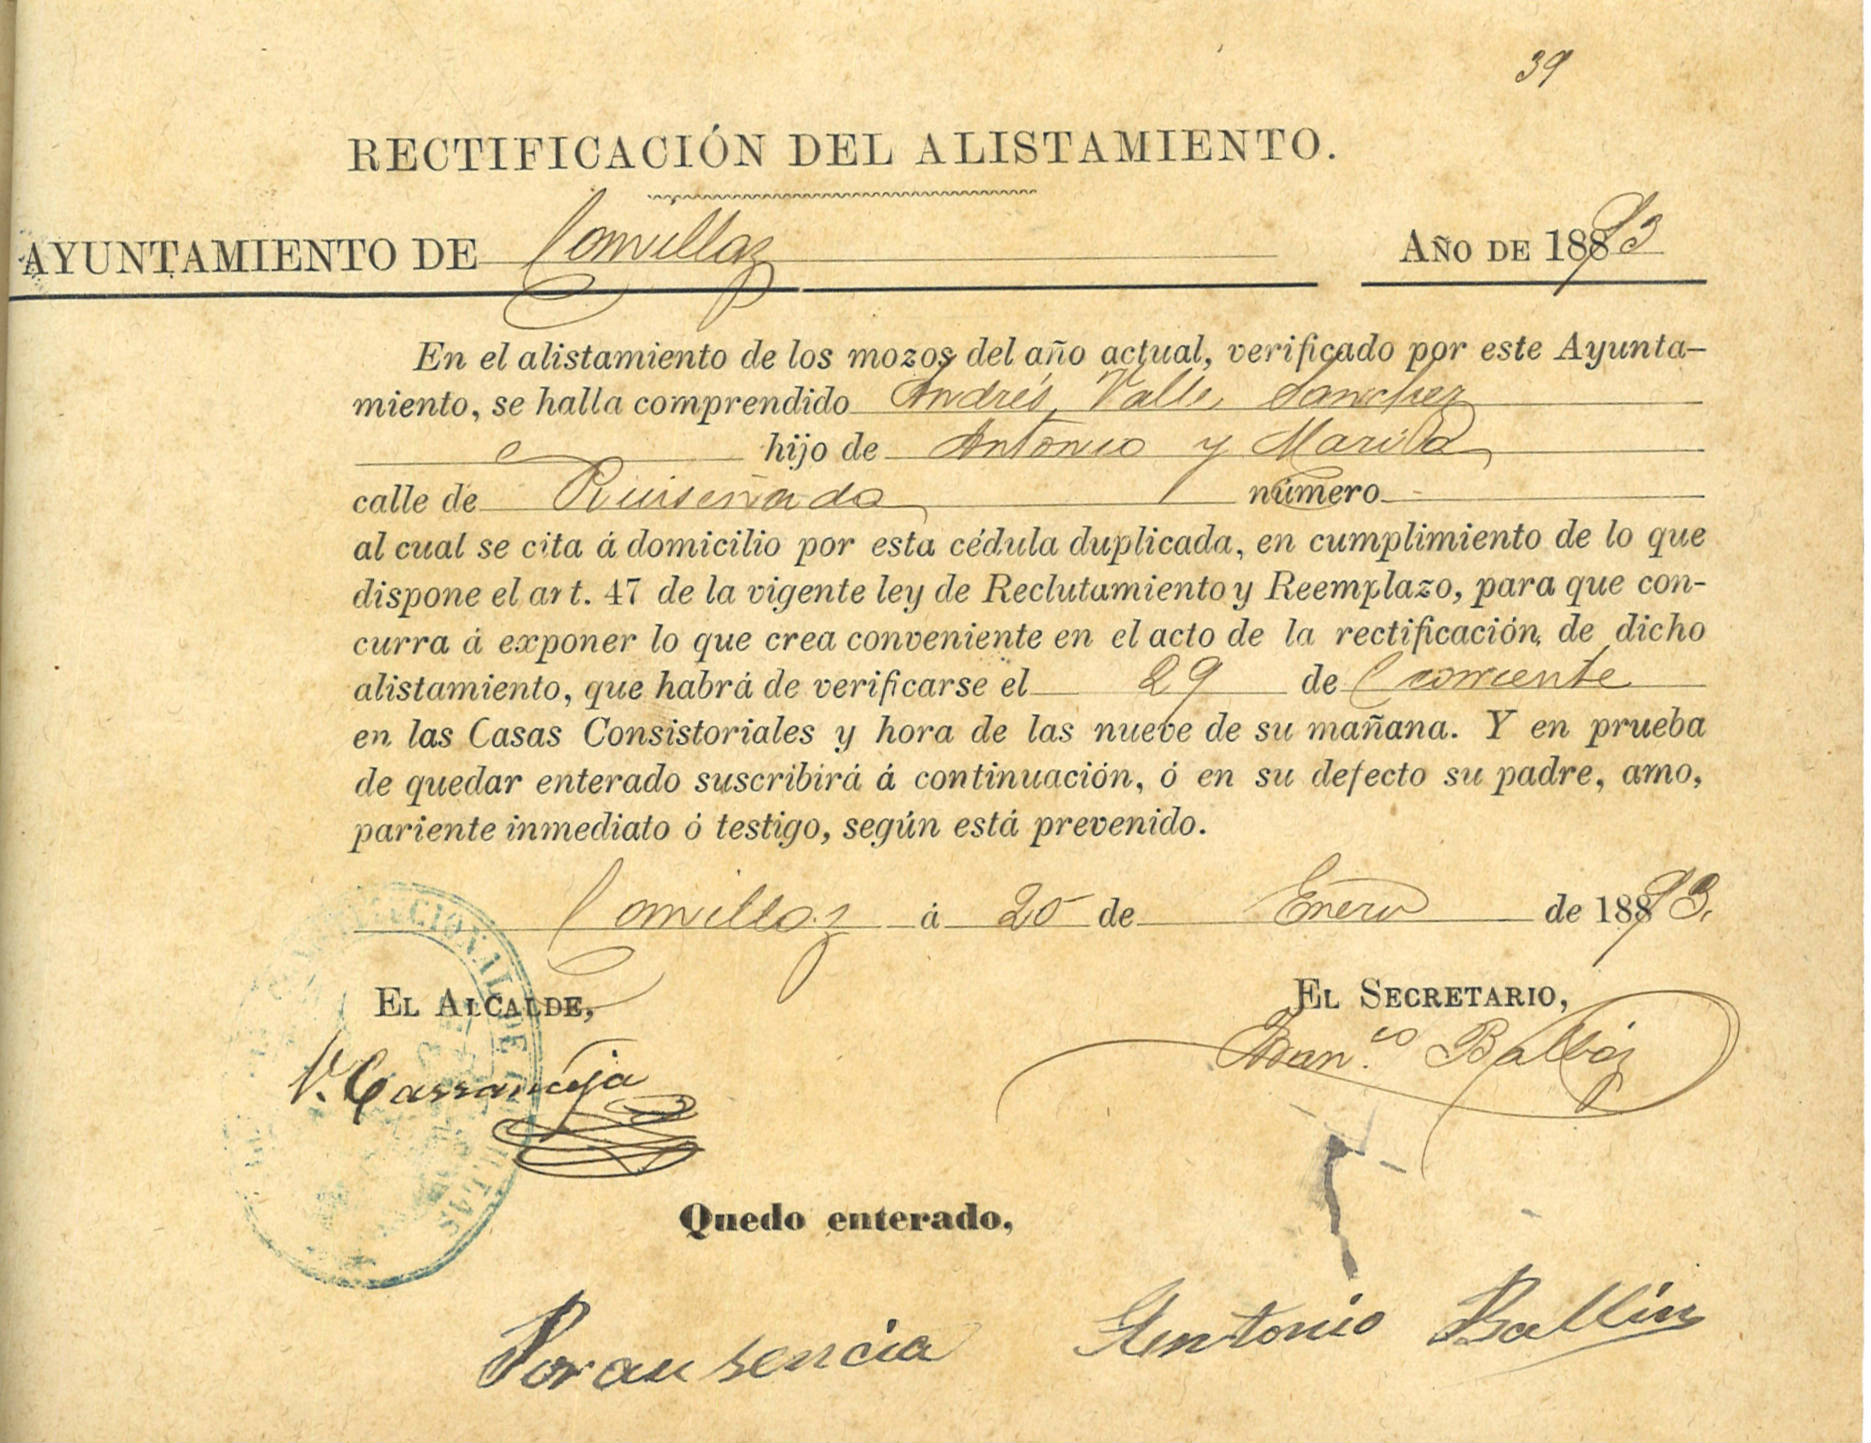 39
RECTIFICACIÓN DEL ALISTAMIENTO.
AYUNTAMIENTO DE Comillas AÑO DE 1893
En el alistamiento de los mozos del año actual, verificado por este Ayunta-
miento, se halla comprendido Andrés Valle Sanchez
hijo de Antonio y Maria
calle de Ruiseñada número
al cual se cita á domicilio por esta cédula duplicada, en cumplimiento de lo que
dispone el art. 47 de la vigente ley de Reclutamiento y Reemplazo, para que con-
curra á exponer lo que crea conveniente en el acto de la rectificación de dicho
alistamiento, que habrá de verificarse el 29 de Corriente
en las Casas Consistoriales y hora de las nueve de su mañana. Y en prueba
de quedar enterado suscribirá á continuación, ó en su defecto su padre, amo,
pariente inmediato ó testigo, según está prevenido.
Comillas á 20 de Enero de 1893.
EL ALCALDE, EL SECRETARIO,
V. Carranceja Fran.co Balbás
Quedo enterado,
Por ausencia Antonio Ballin